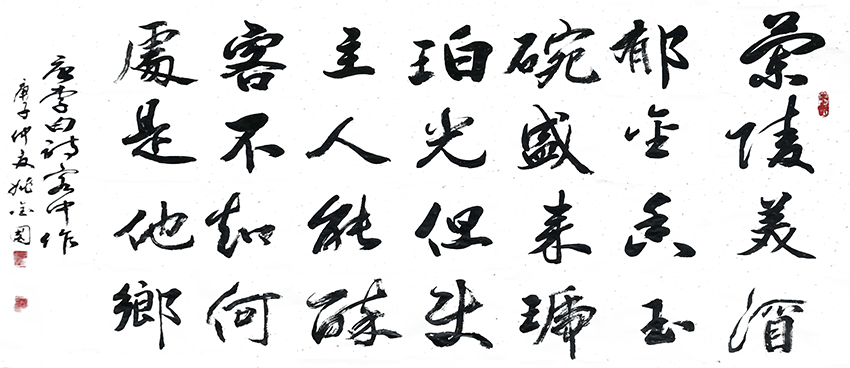 蘭陵美酒
郁金香玉
碗盛来琥
珀光但使
主人能醉
客不知何
處是他鄉
李白詩客中作
庚子仲夏姚金